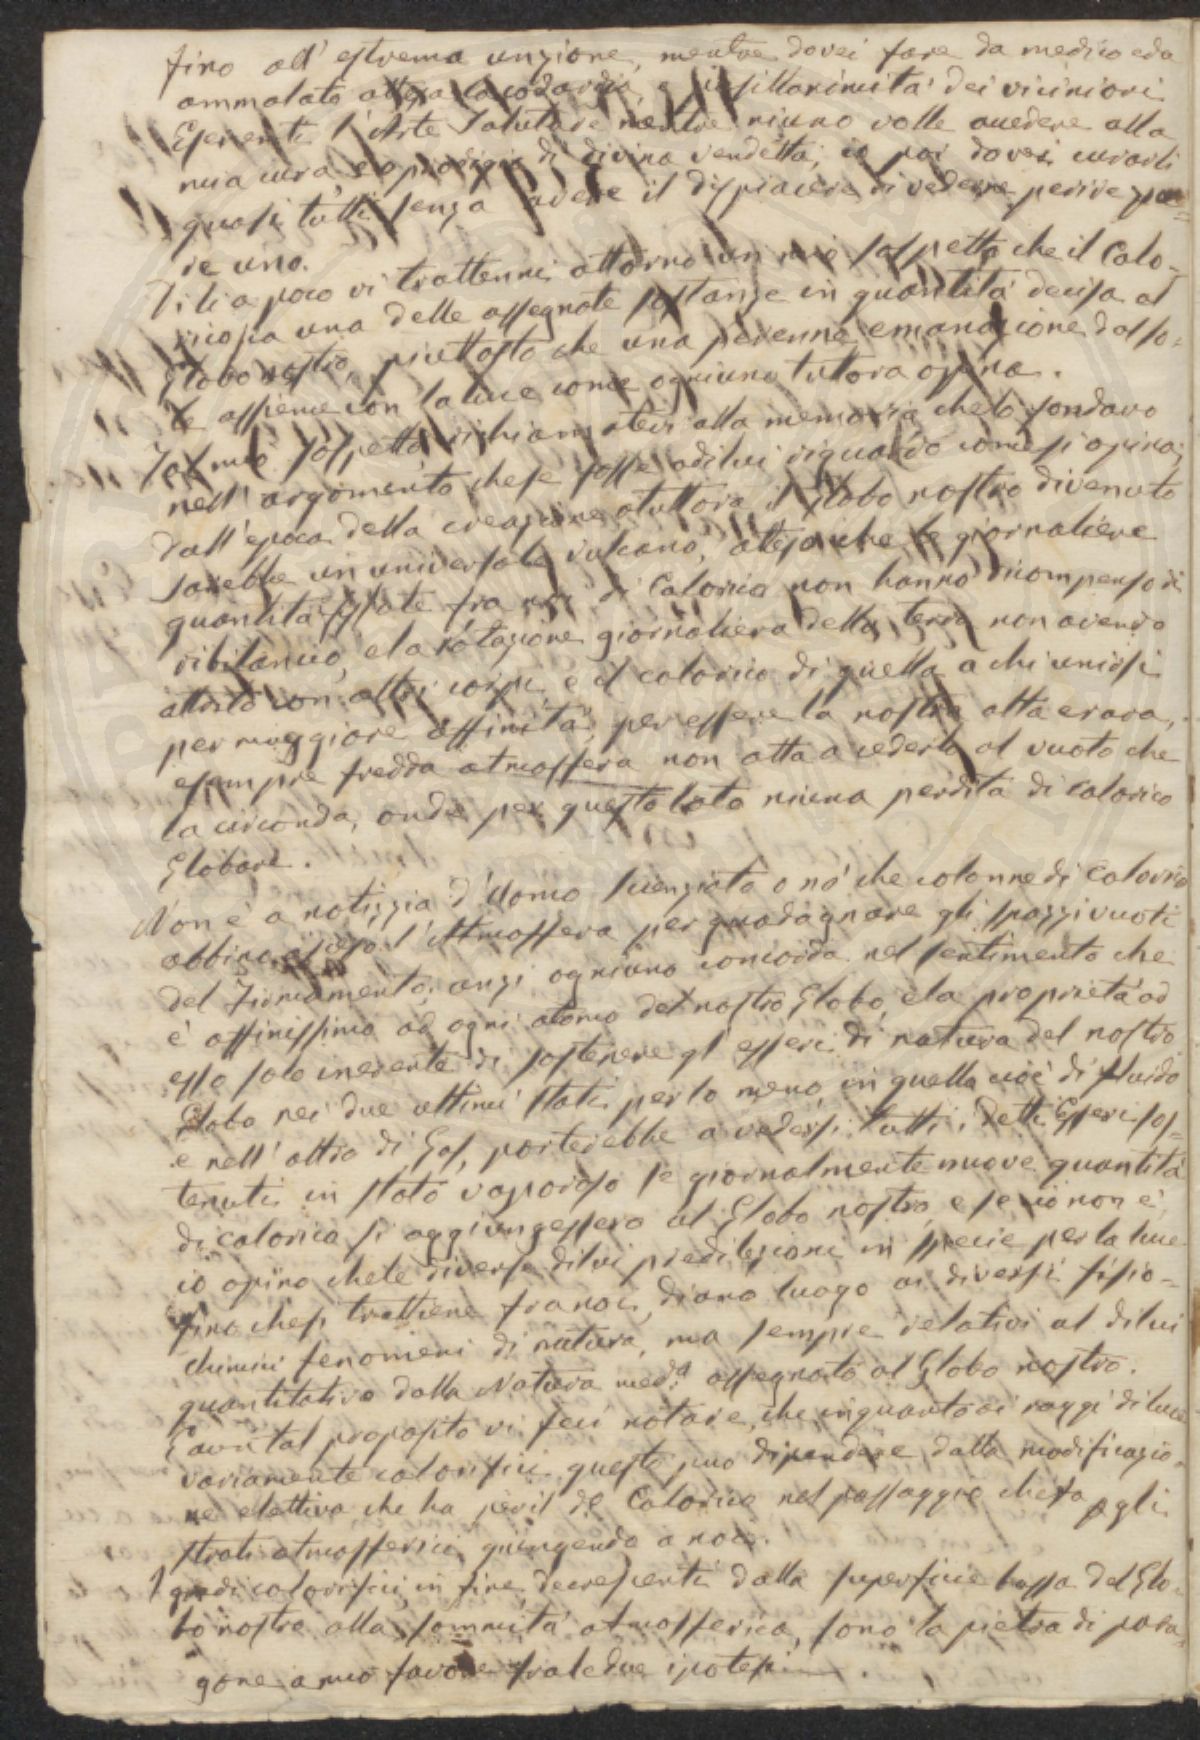 fino all'estrema unzione, mentre dovei fare da medico e da
ammalato attesa la codardia, e pusillanimità dei viciniori
Esercenti l'Arte Salutare mentre niuno volle accedere alla
mia cura, e a prodigio di divina vendetta; io poi dovei curarli
quasi tutti senza avere il dispiacere di vederne perire pu=
re uno.
Di lì a poco vi trattenni attorno un mio sospetto che il Calo=
rico sia una delle assegnate sostanze in quantità decisa al
Globo nostro, piuttosto che una perenne emanazione dal So=
le assieme con la luce come ogniuno tuttora opina.
Tal mio sospetto richiamatevi alla memoria che lo fondavo
nell'argomento che se fosse a di lui riguardo come si opina;
dall'epoca della creazione a tuttora il Globo nostro divenuto
sarebbe un universale vulcano, atteso che le giornaliere
quantità fissate fra noi di Calorico non hanno ricompenso di
ribilancio, e la rotazione giornaliera della terra non avendo
attrito con altri corpi, e il calorico di quella a chi unirsi
per maggiore affinità, per essere la nostra alta e rara,
e sempre fredda atmosfera non atta a cederlo al vuoto che
la circonda, onde per questo lato niuna perdita di Calorico
Globare.
Non è a notizia d'Uomo scienziato o nò che colonne di Calorico
abbino l'Atmosfera per guadagnare gli spazzi vuoti
del Firmamento; anzi ogniuno concorda nel sentimento che
è affinissimo ad ogni atomo del nostro Globo, e la proprietà ad
esso solo inerente di sostenere gl'esseri di natura del nostro
Globo nei due ultimi stati per lo meno, in quella cioè di fluido
e nell'altro di Gas, porterebbe a vedersi tutti i detti Esseri sos=
tenuti in stato vaporoso se giornalmente nuove quantità
di calorico si aggiungessero al Globo nostro, e se ciò non è,
io opino che le diverse di lui predilezioni in specie per la luce
fino che si trattiene fra noi, diano luogo ai diversi fisio=
chimici fenomeni di natura, ma sempre relativi al di lui
quantitativo dalla Natura med.a assegnato al Globo nostro.
E a un tal proposito vi feci notare, che inquanto ai raggi di luce
variamente calorifici questo può dipendere dalla modificazio=
ne elettiva che ha per il de Calorico nel passaggio che fa p gli
strati atmosferici giungendo a noi.
I gradi calorifici in fine decrescenti dalla superficie bassa del Glo=
bo nostro alla sommità atmosferica, sono la pietra di para=
gone a mio favore fra le due ipotesi.